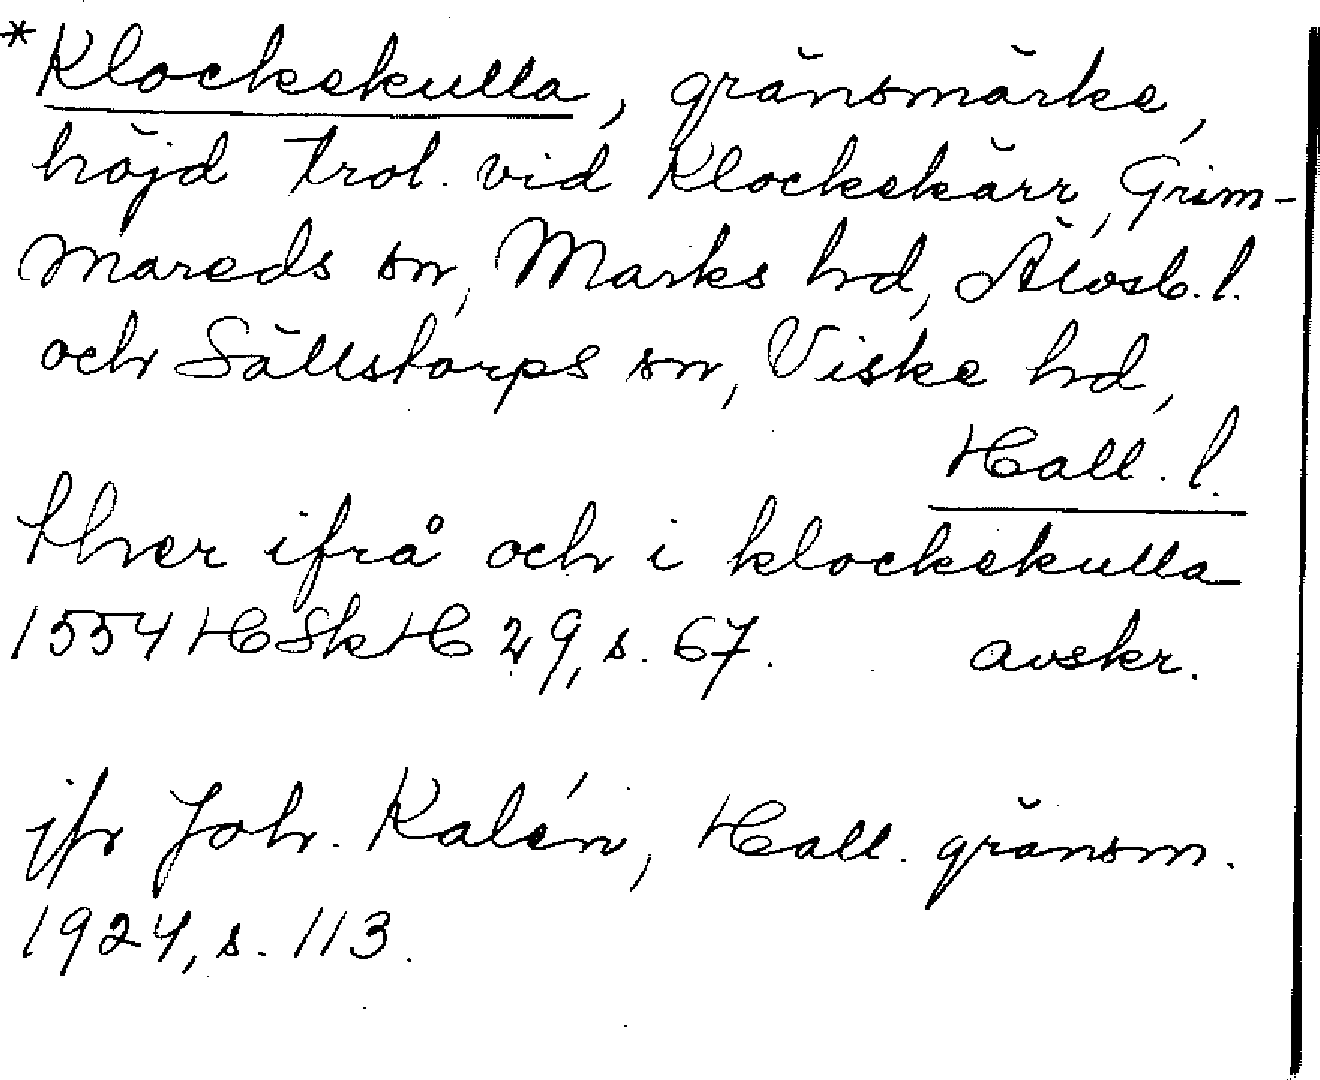 *Klockekulla, gränsmärke,
höjd trol. vid Klockekärr, Grim-
mareds sn, Marks hd, Älvsb. l.
och Sällstorps sn, Viske hd,
Hall. l.
thver ifrå och i klockekulla
1554 HSkH 29, s. 67. avskr.
jfr Joh. Kalén, Hall. gränsm.
1924, s. 113.